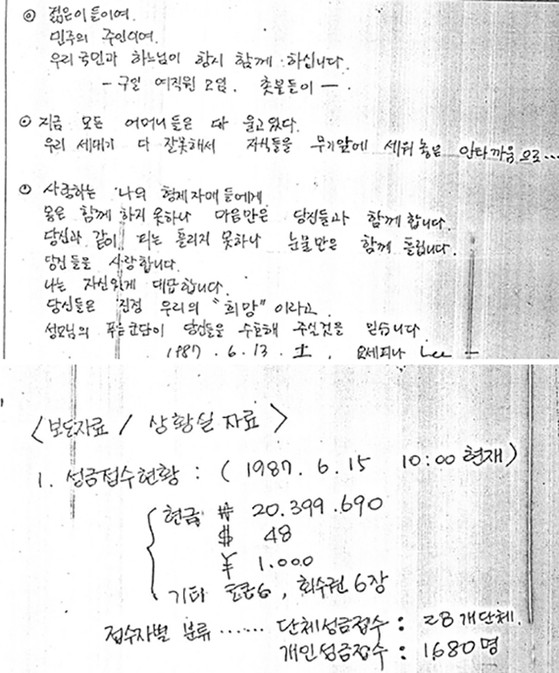 ◎ 젊은이들이여.
민주의 주인이여.
우리 국민과 하느님이 항시 함께 하십니다.
- 구일 여직원 모임. 촛불들이 -
◎ 지금 모든 어머니들은 다 울고있다.
우리 세대가 다 잘못해서 자식들을 무기앞에 세워 놓은 안타까움으로...
사랑하는 나의 형제 자매들에게
몸은 함께 하지 못하나 마음만은 당신들과 함께 합니다.
당신과 같이 피는 흘리지 못하나 눈물만은 함께 흘립니다.
당신들을 사랑합니다.
나는 자신있게 대답합니다.
당신들은 직접 우리의 "희망" 이라고.
성모님의 푸른 망또단이 당신들을 수호해 주실것을 믿습니다
1987. 6. 13. 土. 요세피나 Lee -
<보도자료 / 상황실 자료>
1. 성금접수현황 : ( 1987. 6. 15 10:00 현재)
현금 ₩ 20.399.690
$ 48
¥ 1.000
기타 토큰6, 회수권 6장
접수자별 분류 ...... 단체성금접수 : 28개단체.
개인성금접수 : 1680명